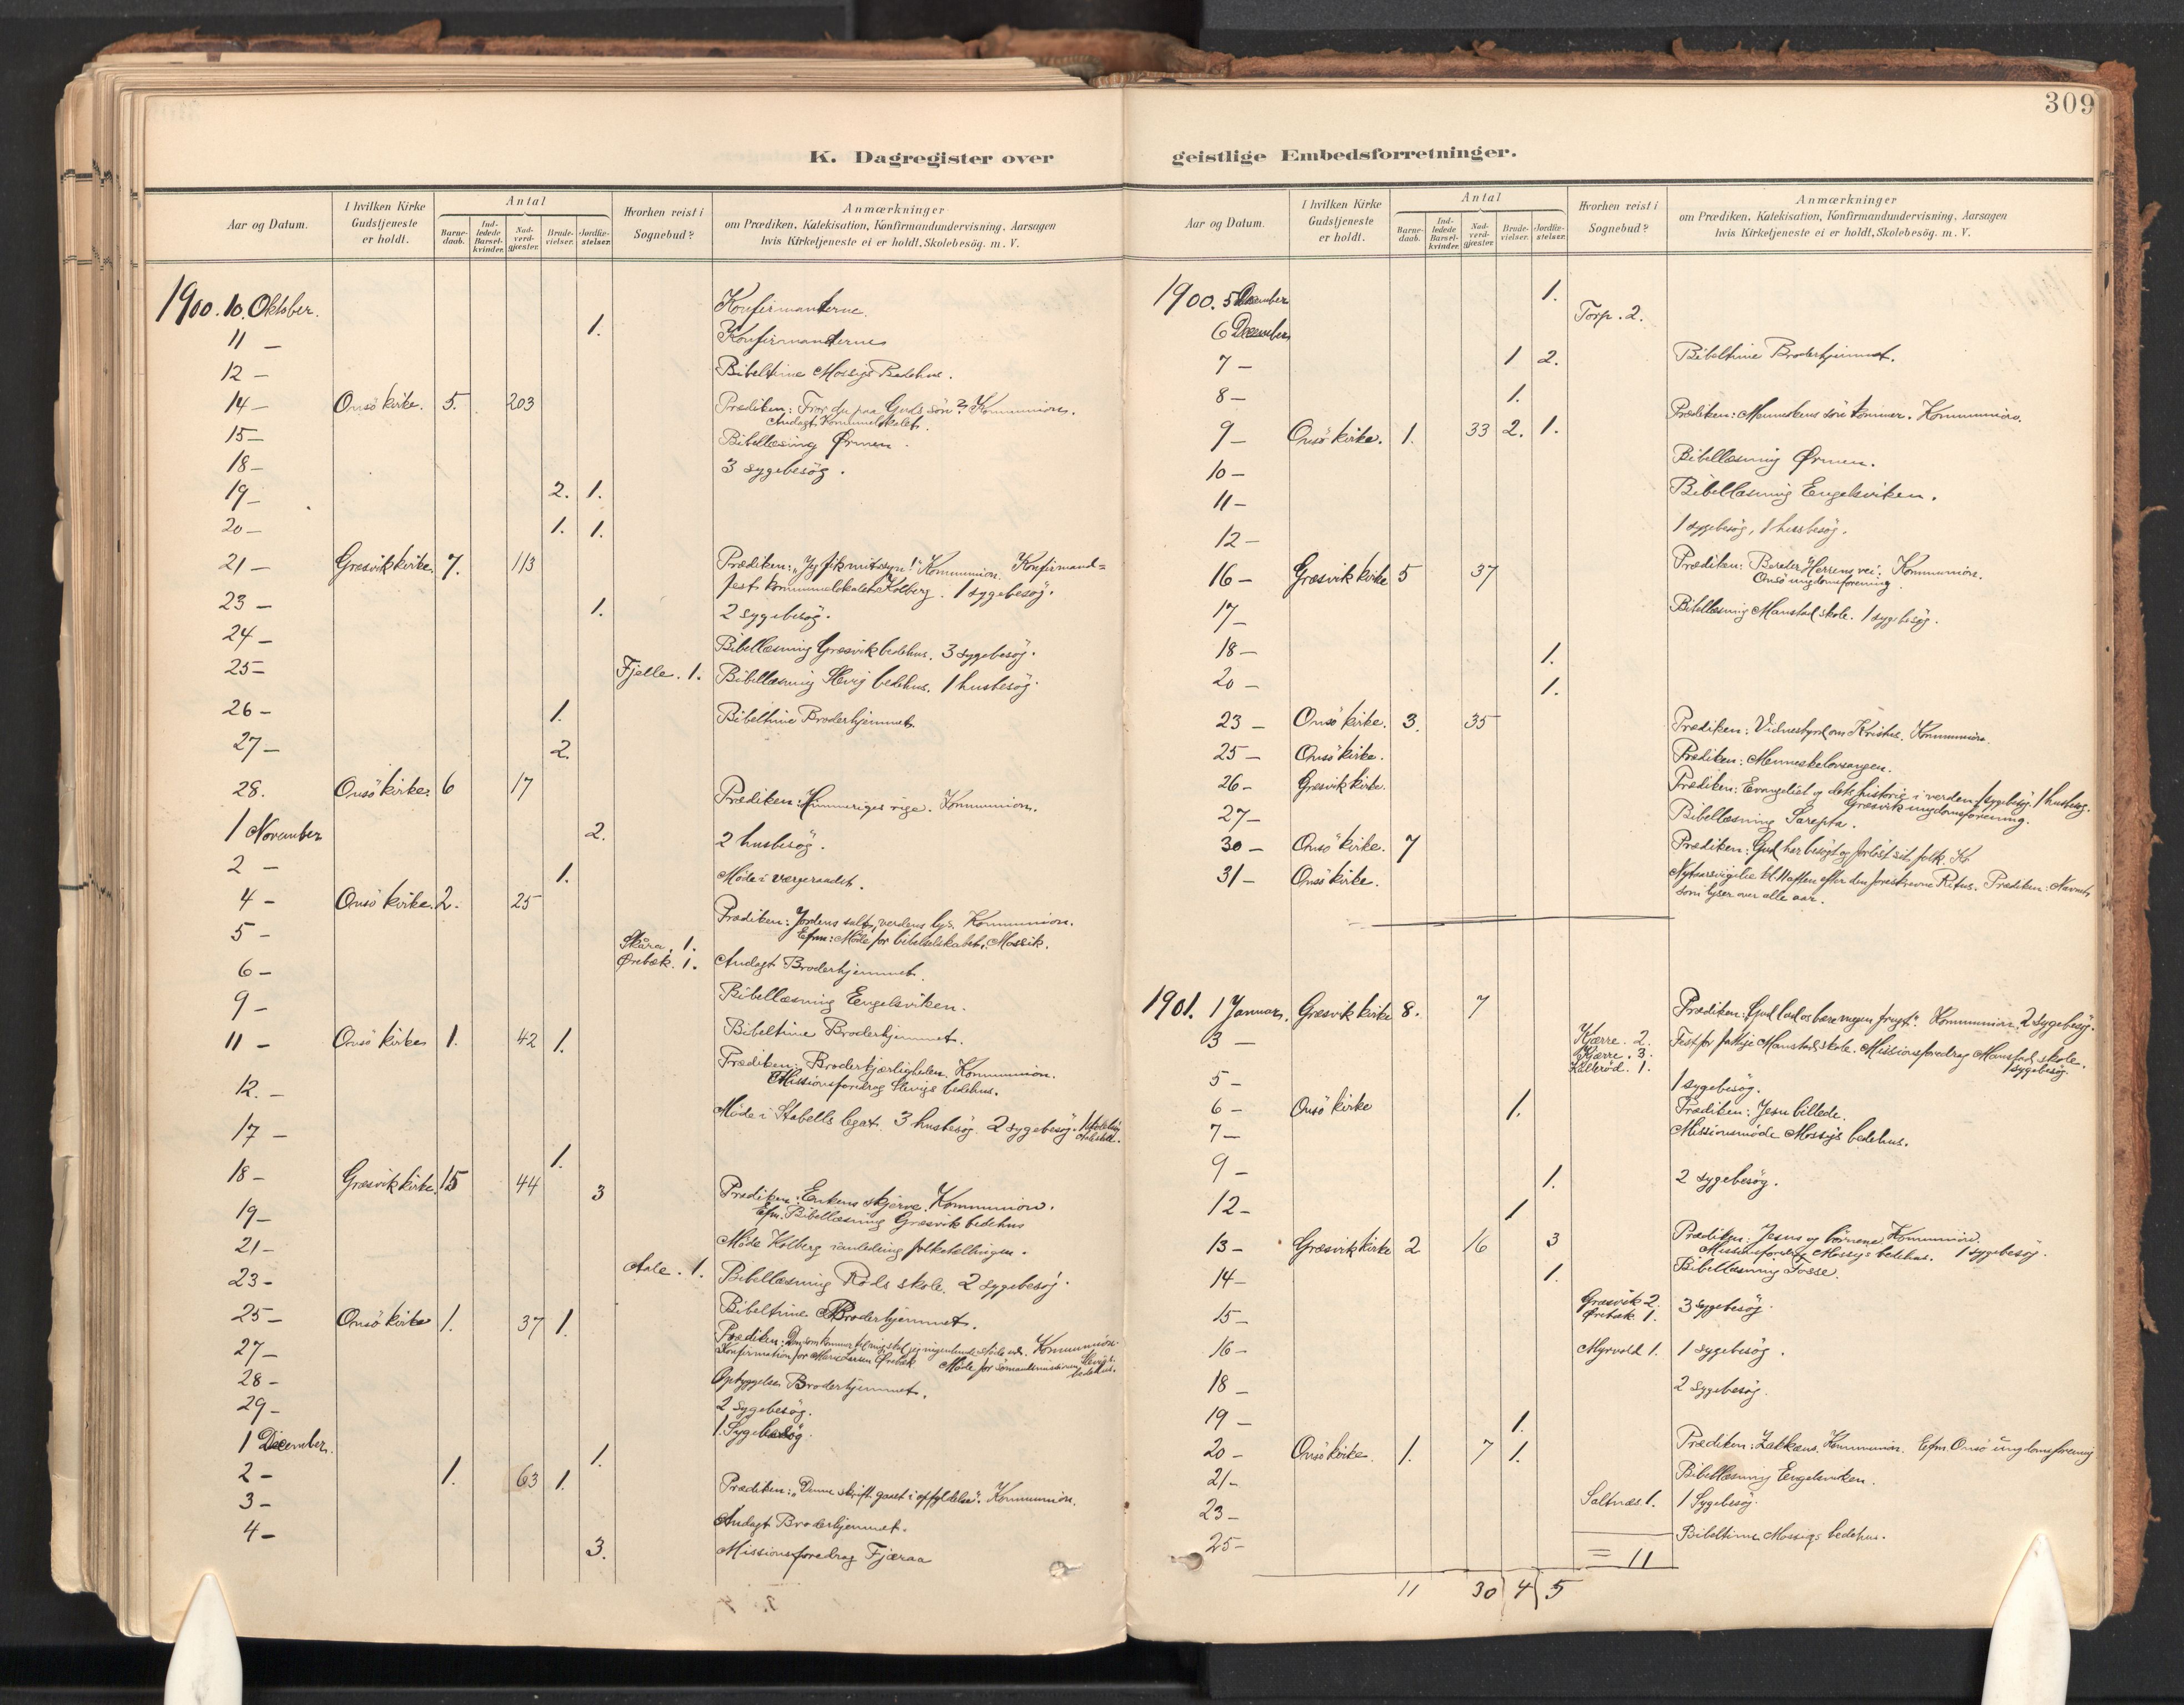 309
K. Dagregister over
geistlige Embedsforretninger.
Aar og Datum.
I hvilken Kirke Gudstjeneste er holdt.
Antal
Barne-daab.
Ind-ledede Barsel-kvinder.
Nad-verd-gjester.
Brude-vielser.
Jordfæ-stelser.
Hvorhen reist i Sognebud?
Anmærkninger
om Prædiken, Katekisation, Konfirmandundervisning, Aarsagen
hvis Kirketjeneste ei er holdt, Skolebesög. m. V.
1900. 10. Oktober. Konfirmanterne.
11 — 1. Konfirmanterne
12 — Bibeltime Mossigs Bedehus.
14 — Onsö kirke. 5. 203 Prædiken: Tror du paa Guds sön? Kommunion.
Andagt Kommunelokalet.
15 — Bibellæsning Ørmen.
18 — 3 sygebesög.
19 — 2. 1.
20 — 1. 1.
21 — Græsvik kirke. 7. 113 Prædiken: "Jeg fik mit syn!" Kommunion. Konfirmand=
fest. kommunelokalet Kolberg. 1 sygebesög.
23 — 1. 2 sygebesög.
24 — Bibellæsning Græsvik bedehus. 3 sygebesög.
25 — Fjelle. 1. Bibellæsning Slevig bedehus. 1 husbesög.
26 — 1. Bibeltime Broderhjemmet.
27 — 2.
28. Onsö kirke. 6 17 Prædiken: Himmeriges rige. Kommunion.
1 November 2. 2 husbesög.
2 — 1. Møde i værgeraadet.
4 — Onsö kirke. 2. 25 Prædiken: Jordens salt, verdens lys. Kommunion.
Efm: Møde for bibelselskabet, Mossik.
5 — Skåra. 1.
Ørebæk. 1. Andagt Broderhjemmet.
6 —
9 — Bibellæsning Engelsviken.
Bibeltime Broderhjemmet.
11 — Onsö kirke 1. 42 1. Prædiken: Broderkjærligheden. Kommunion.
Missionsforedrag Slevigs bedehus.
12. — Møde i Stabells legat. 3 husbesög. 2 sygebesög.
17 — 1.
18 — Græsvik kirke. 15 44 3 Prædiken: Enkens skjærv. Kommunion.
Efm. Bibellæsning Græsvik bedehus
19 — Møde Kolberg i anledning folketællingen.
21 — Aale. 1. Bibellæsning Röds skole. 2 sygebesög.
23 — Bibeltime Broderhjemmet.
25 — Onsö kirke 1. 37 1. Prædiken: Den som kommer til mig skal jeg ingenlunde støde ud. Kommunion.
Konfirmation for Larsen Ørebæk Møde for sömandsmissionen, Slevigs bedehus.
27 — Opbyggelse Broderhjemmet.
28 — 2 sygebesög.
29 — 1. Sygebesög.
1 December. 1.
2 — 1. 63 1. Prædiken: "Denne skrift gaaet i opfyldelse". Kommunion.
3 — Andagt Broderhjemmet.
4 — 3. Missionsforedrag Fjæraa
Aar og Datum.
I hvilken Kirke Gudstjeneste er holdt.
Antal
Barne-daab.
Ind-ledede Barsel-kvinder.
Nad-verd-gjester.
Brude-vielser.
Jordfæ-stelser.
Hvorhen reist i Sognebud?
Anmærkninger
om Prædiken, Katekisation, Konfirmandundervisning, Aarsagen
hvis Kirketjeneste ei er holdt, Skolebesög. m. V.
1900. 5 December 1.
6 December Torp. 2.
7 — 1 2. Bibeltime Broderhjemmet.
8 — 1.
9 — Onsö kirke. 1. 33 2. 1. Prædiken: Menneskens sön kommer. Kommunion.
10 — Bibellæsning Ørmen.
11 — Bibellæsning Engelsviken.
12 — 1 sygebesög, 1 husbesög.
16 — Græsvik kirke 5 37 Prædiken: Bereder Herrens vei. Kommunion.
Onsö ungdomsforening.
17 — Bibellæsning Manstad skole. 1 sygebesög.
18 — 1.
20 — 1.
23 — Onsö kirke. 3. 35 Prædiken: Vidnesbyrd om Kristus. Kommunion.
25 — Onsö kirke. Prædiken: Menneskelovsangen.
26 — Græsvik kirke. Prædiken: Evangeliet og dets historie i verden. 1 sygebesög. 1 husbesög.
Græsvik ungdomsforening.
27 — Bibellæsning Sarepta.
30 — Onsö kirke. 7 Prædiken: Gud har besøgt og forløst sit folk.
31 — Onsö kirke. Nytaarsvigilie kl. 11 aften efter den foreskrevne Ritus. Prædiken: Navnet,
som lyser over alle aar.
1901. 1 Januar. Græsvik kirke 8. 7 Prædiken: Gud lad os bære megen frugt. Kommunion. 2 Sygebesög.
3 — Kjærre. 2. Fest for fattige Manstad skole. Missionsforedrag Manstad skole.
Kjærre. 3. 1 sygebesög.
Lillerød. 1.
5 — 1 sygebesög.
6 — Onsö kirke 1. Prædiken: Jesu billede.
7 — Missionsmöde Mossigs bedehus.
9 — 1. 2 sygebesög.
12 — 1
13 — Græsvik kirke 2 16 3 Prædiken: Jesus og börnene. Kommunion.
Missionsforedrag Mossigs bedehus. 1 sygebesög.
14 — 1. Bibellæsning Fosse.
15 — Græsvik 2. 3 sygebesög.
Ørebæk 1.
16 — Myrvold 1. 1 sygebesög.
18 — 2 sygebesög.
19 — 1.
20 — Onsö kirke. 1. 7 1. Prædiken: Zakkæus. Kommunion. Efm. Onsö ungdomsforening
21 — Bibellæsning Engelsviken.
23 — Saltnæs 1. 1 Sygebesög.
25 — Bibeltime Mossigs bedehus.
= 11
11 30 4 5